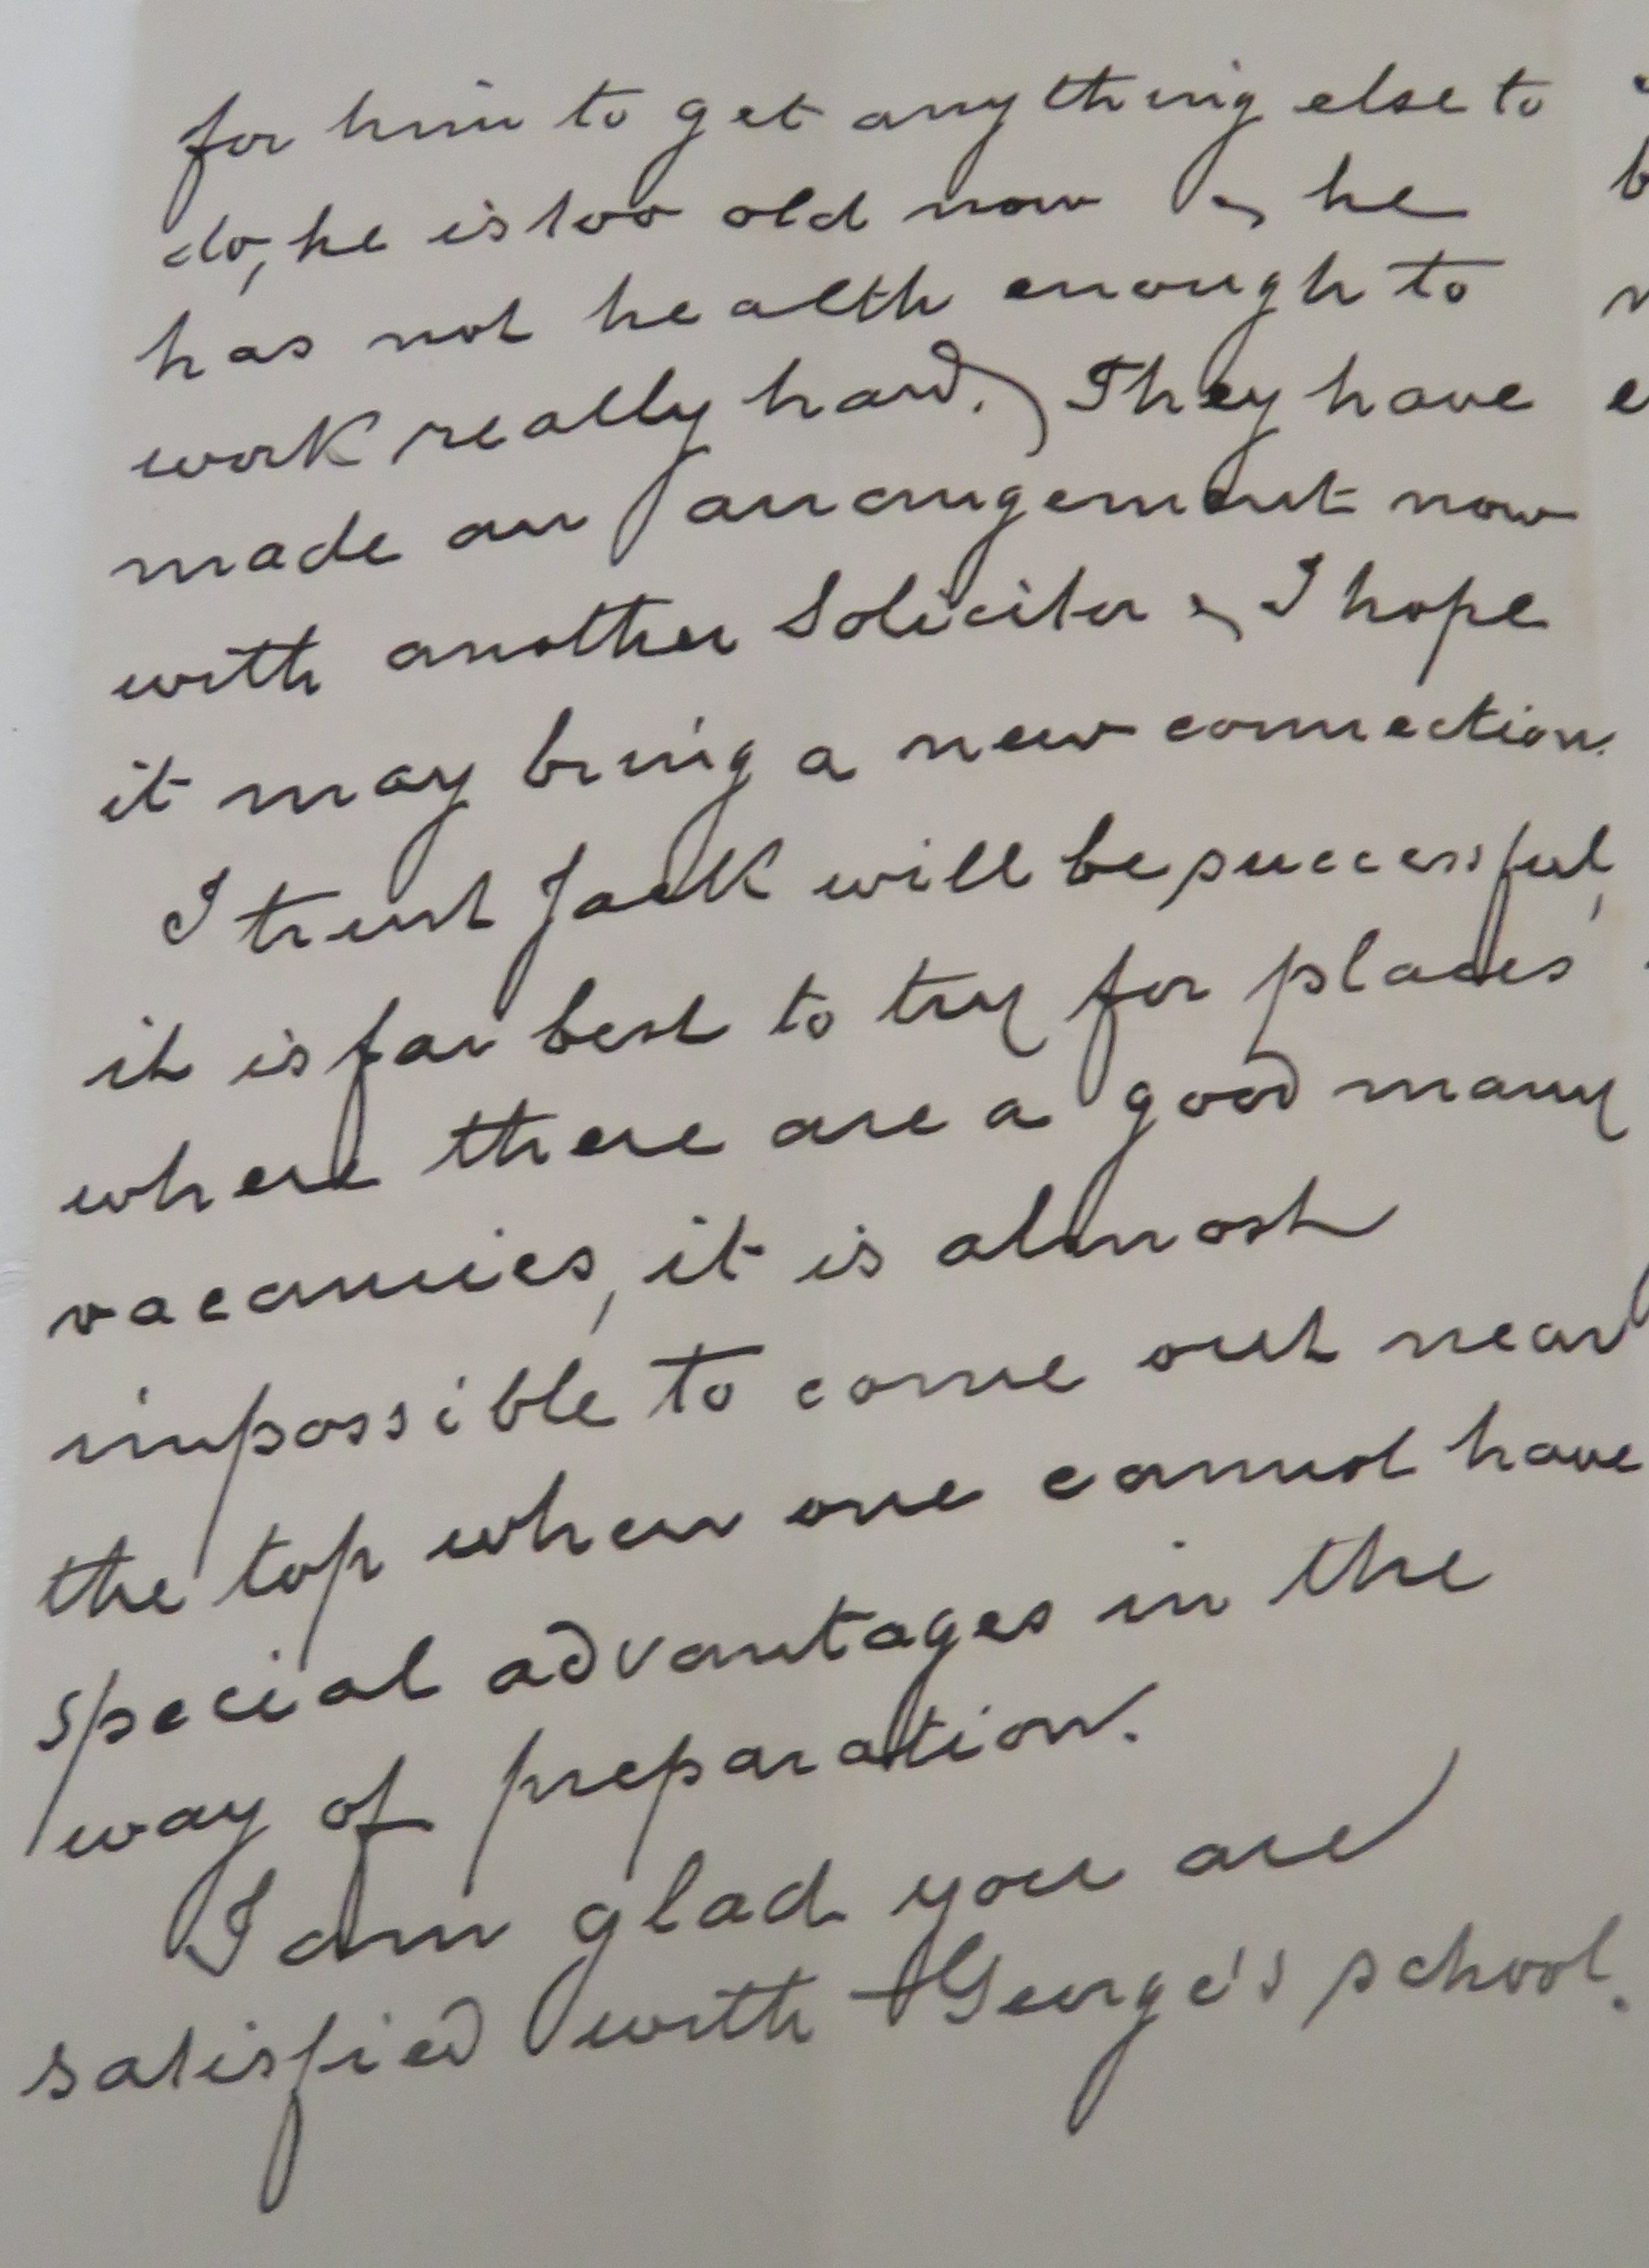 for him to get anything else to
do, he is too old now & he
has not health enough to
work really hard.) They have
made an arrangement now
with another Solicitor & I hope
it may bring a new connection.
I trust Jack will be successful,
it is far best to try for places
where there are a good many
vacancies, it is almost
impossible to come out near
the top when one cannot have
special advantages in the
way of preparation.
I am glad you are
satisfied with George's school.